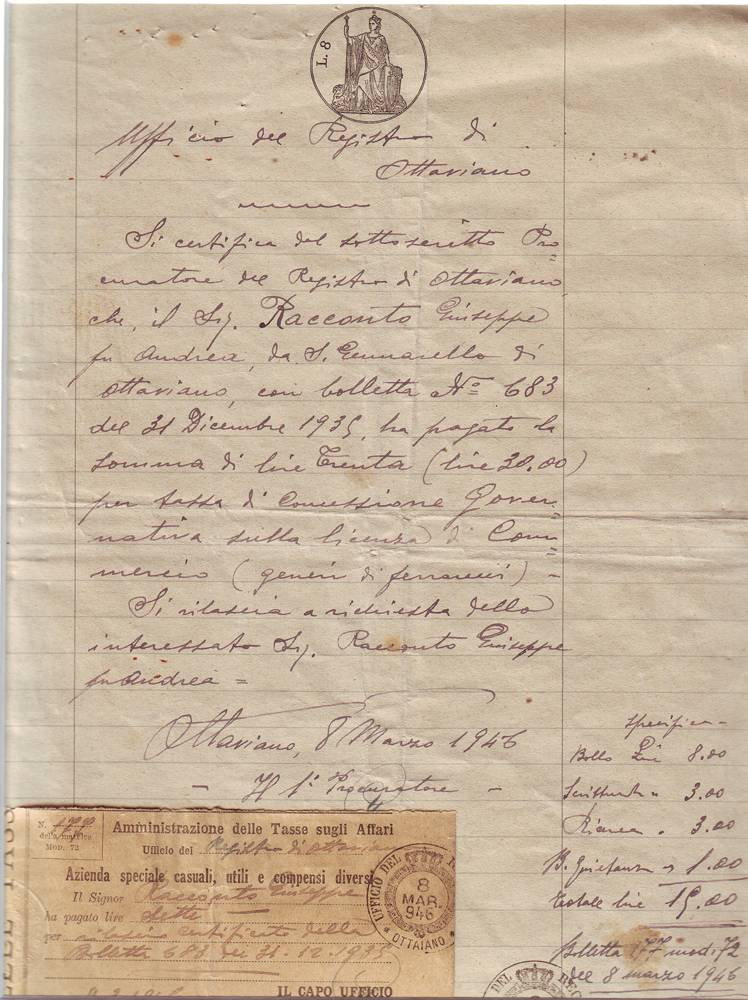 L. 8
Ufficio del Registro di
Ottaviano
Si certifica dal sottoscritto Pro=
curatore del Registro di Ottaviano
che, il Sig. Racconto Giuseppe
fu Andrea, da S. Gennarello di
Ottaviano, con bolletta No 683
del 31 Dicembre 1935, ha pagato la
somma di lire Trenta (lire 30.00)
per tassa di Concessione Gover=
nativa sulla licenza di Com=
mercio (generi di ferramenti) -
Si rilascia a richiesta dello
interessato Sig. Racconto Giuseppe
fu Andrea =
Ottaviano, 8 Marzo 1946
- Il 1° Procuratore -
Specifica -
Bollo Lire 8.00
Scritturato " 3.00
Ricerca " 3.00
B. Quietanza " 1.00
Totale lire 15.00
Bolletta 177 mod. 72
del 8 marzo 1946
N.
della matrice
MOD. 72
Amministrazione delle Tasse sugli Affari
Ufficio del Registro di Ottaviano
Azienda speciale casuali, utili e compensi diversi
Il Signor Racconto Giuseppe
ha pagato lire Sette
per rilascio certificato della
Bolletta 683 del 31-12-1935
IL CAPO UFFICIO
UFFICIO DEL
8
MAR.
946
* OTTAIANO *
DEL REG